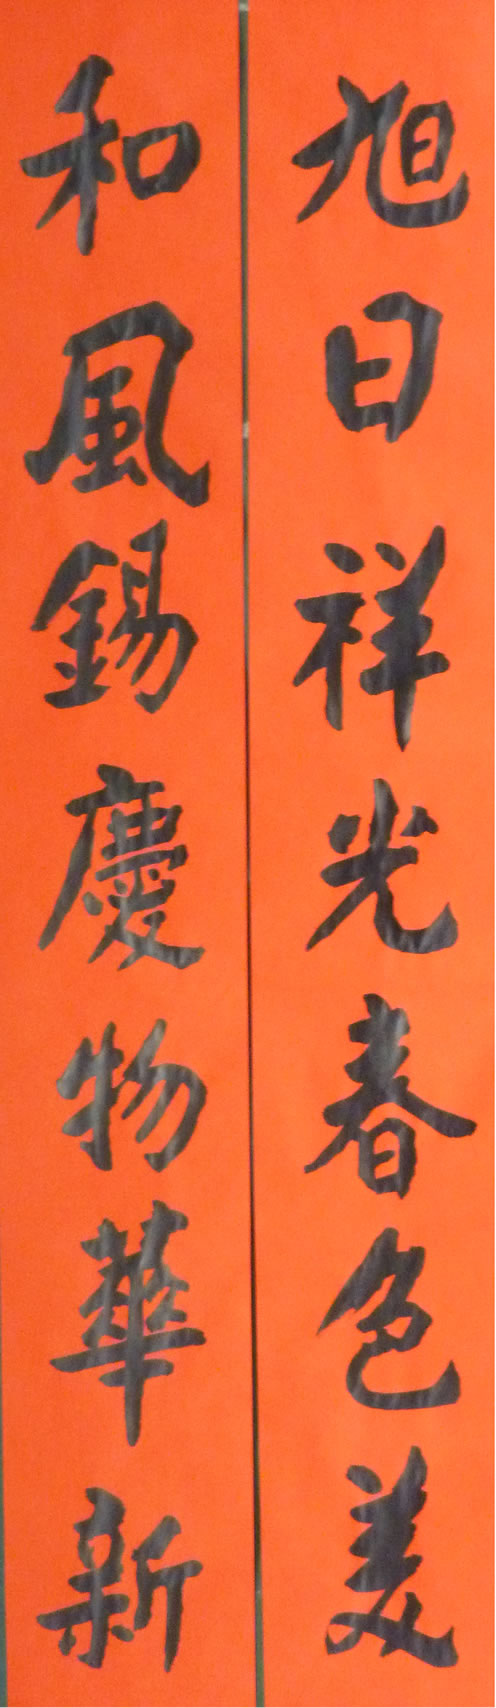 旭日祥光春色美
和風錫慶物華新